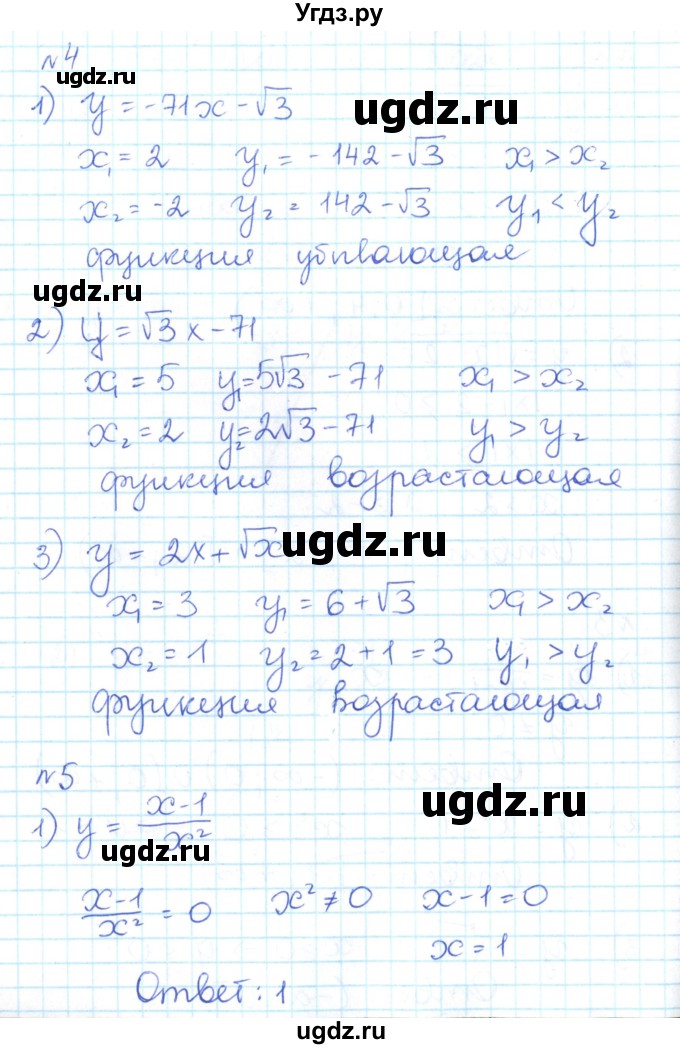 Угдз.ру
№4
ugdz.ru
1) y = -71x - √3
ugdz.ru
x₁ = 2 y₁ = -142 - √3 x₁ > x₂
x₂ = -2 y₂ = 142 - √3 y₁ < y₂
функция убывающая
ugdz.ru
2) y = √3x - 71
x₁ = 5 y₁ = 5√3 - 71 x₁ > x₂
x₂ = 2 y₂ = 2√3 - 71 y₁ > y₂
функция возрастающая
3) y = 2x + √x
ugdz.ru
x₁ = 3 y₁ = 6 + √3 x₁ > x₂
x₂ = 1 y₂ = 2 + 1 = 3 y₁ > y₂
функция возрастающая
№5
ugdz.ru
1) y = (x-1)/x²
ugdz.ru
(x-1)/x² = 0 x² ≠ 0 x - 1 = 0
x = 1
Ответ: 1
ugdz.ru